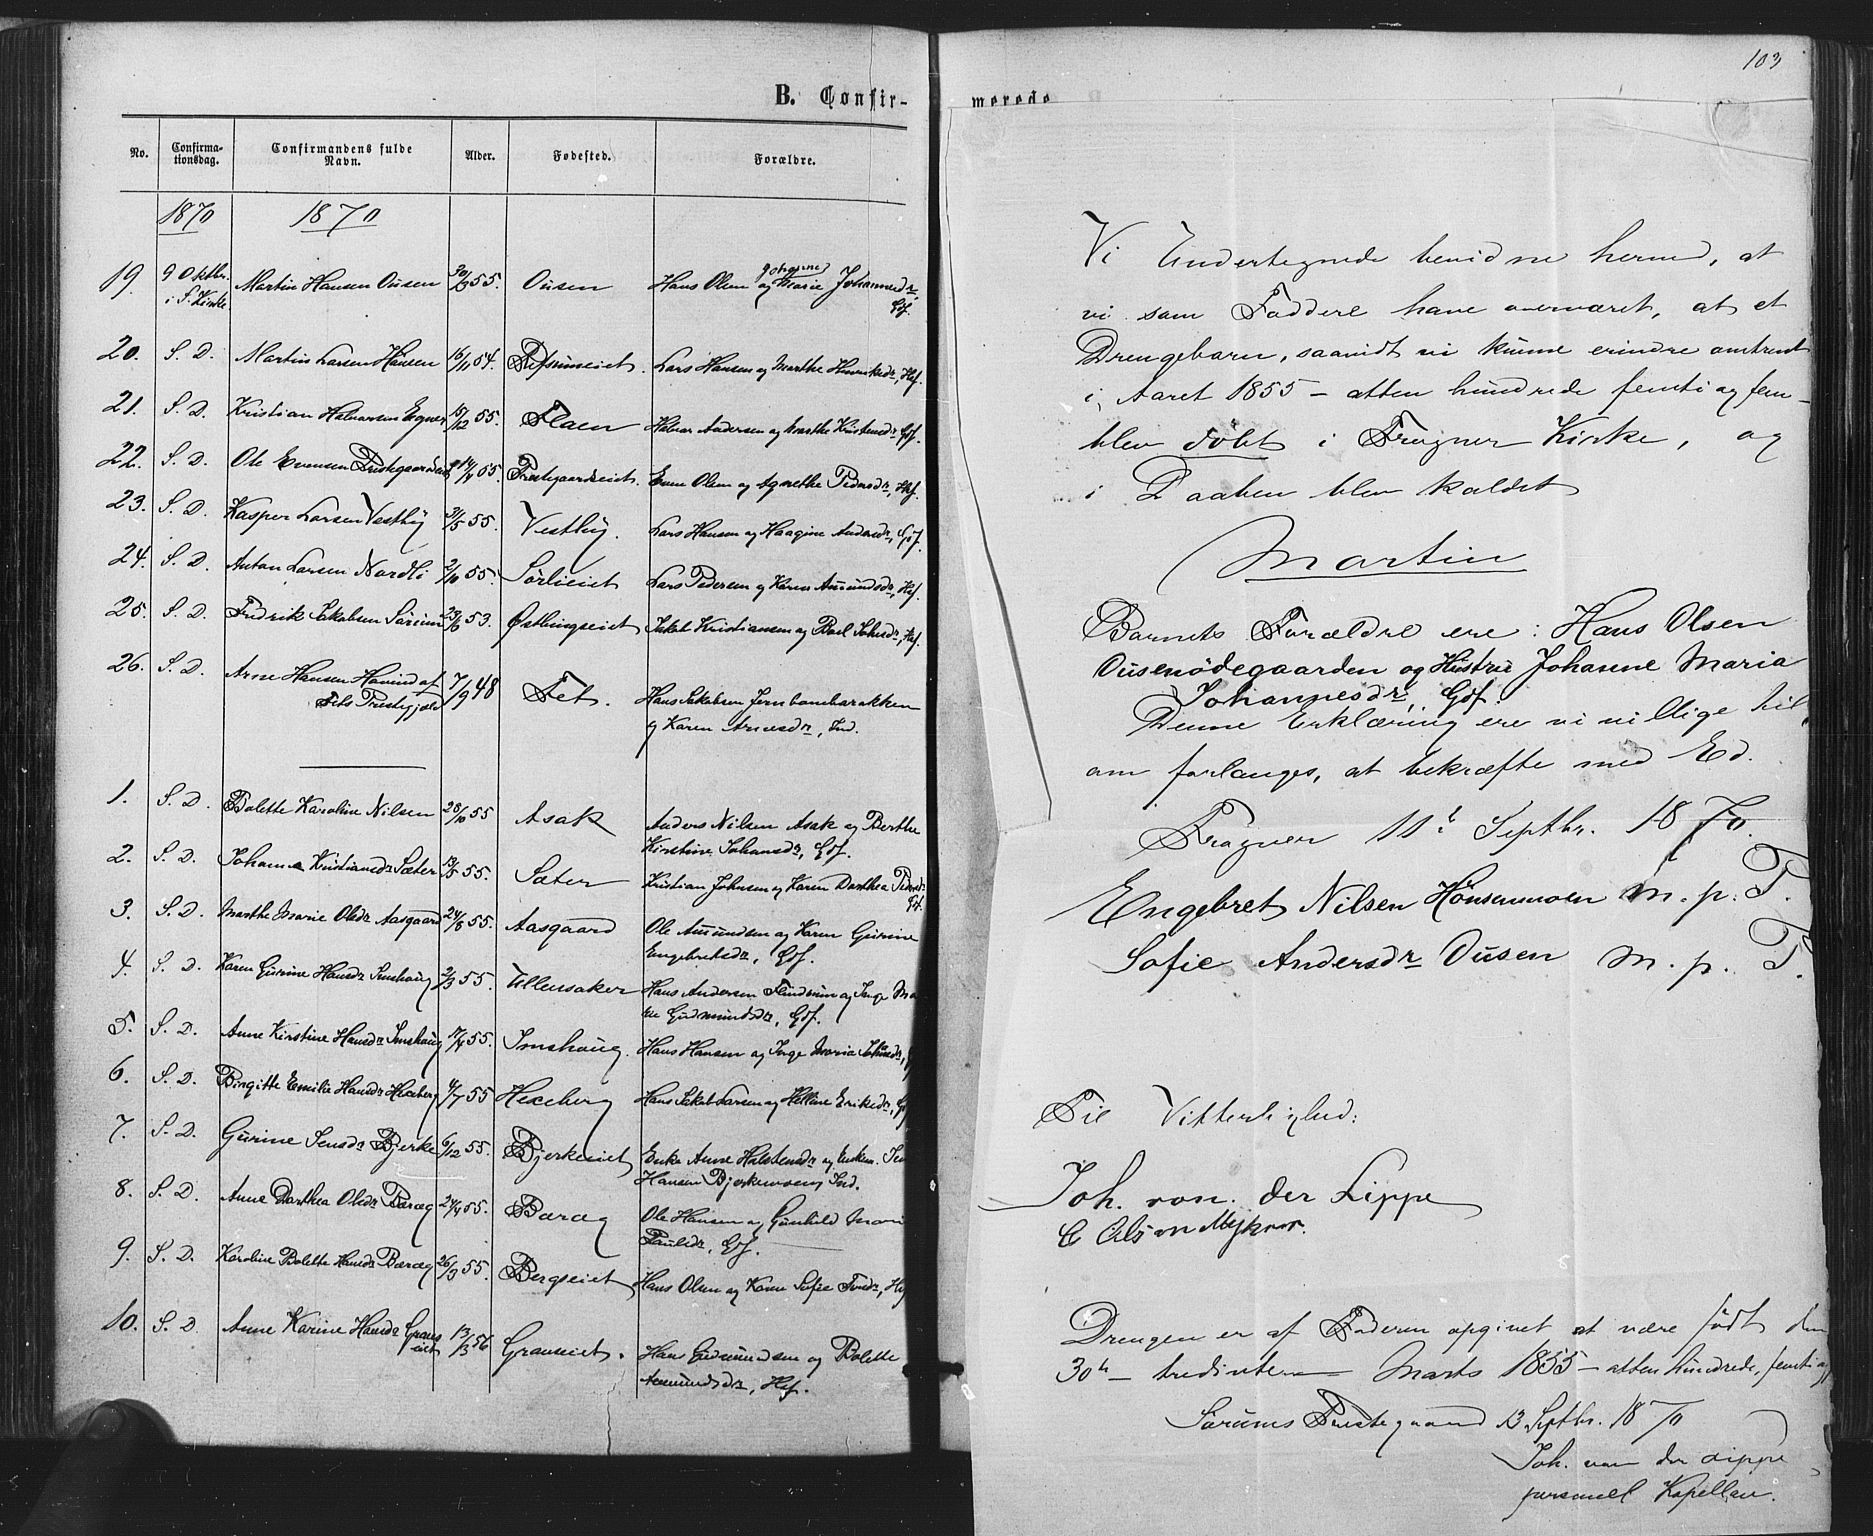 B. Confir-
No. Confirma-tionsdag. Confirmandens fulde Navn. Alder. Fødested. Forældre.
1870 1870
19. 9 Oktbr. i S. Kirke Martin Hansen Ousen 30/3 55. Ousen Hans Olsen og Johanne Marie Johannesdr, Gdf.
20. S. D. Martin Larsen Hansen 16/11 54. Refsumeiet. Lars Hansen og Marthe Henriksdr, Hsf.
21. S. D. Kristian Halvorsen Egner 15/12 55. Flaen Halvor Andersen og Marthe Kristensdr, Gdf.
22. S. D. Ole Evensen Prestegaardseiet 14/4 55. Prestegaardseiet. Even Olsen og Agnethe Pedersdr, Hsf.
23. S. D. Kasper Larsen Vestby 31/5 55. Vestby. Lars Hansen og Haagine Andersdr, Gdf.
24. S. D. Anton Larsen Nordli 2/10 55. Sörlieiet Lars Pedersen og Karen Amundsdr, Hsf.
25. S. D. Fredrik Jakobsen Sörum 23/6 53. Østbyngseiet Jakob Kristiansen og Boel Johsdr, Hsf.
26. S. D. Arne Hansen Hovind af Fets Prestegjæld 7/9 48 Fet. Hans Jakobsen Jernbanebarakken
og Karen Arnesdr, Ind.
1. S. D. Bolette Karoline Nilsen 28/10 55 Asak Anders Nilsen Asak og Berthe
Kirstine Johansdr, Gdf.
2. S. D. Johanne Kristiansdr Sæter 13/5 55. Sæter Kristian Johnsen og Karen Dorthea Pedersdr
Gdf.
3. S. D. Marthe Marie Olsdr Aasgaard 24/8 55. Aasgaard Ole Amundsen og Karen Gurine
Engebretsdr, Gdf.
4. S. D. Karen Gurine Hansdr Imshaug 2/3 55. Ullensaker Hans Andersen Flindrum og Inge Ma
rie Gudmundsdr, Gdf.
5. S. D. Anne Kirstine Hansdr Imshaug 17/4 55. Imshaug. Hans Hansen og Inge Maria Johnsdr,
6. S. D. Birgitte Emilie Hansdr Hexeberg 4/7 55 Hexeberg Hans Jakob Larsen og Helline Eriksdr, Gdf
7. S. D. Gurine Jensdr Bjerke 6/12 55. Bjerkeeiet Enke Anne Halstensdr og Enkem. Jens
Hansen Bjerkemoen, Ind.
8. S. D. Anne Dorthea Olsdr Boræg 24/4 55. Boræg Ole Hansen og Gunhild Mari
Paulsdr, Gdf.
9. S. D. Karoline Bolette Hansdr Boræg 26/3 55. Bergseiet Hans Olsen og Karen Sofie Iversdr, Hsf
10. S. D. Anne Karine Hansdr Graneiet 13/3 56 Graneiet. Hans Gudmundsen og Bolette
Amundsdr, Hsf.
103
merede
Vi Undertegnede bevidne herved, at
vi som Faddere have overværet, at et
Drengebarn, saavidt vi kunne erindre omtrent
i Aaret 1855 – atten hundrede femti og fem –
blev døbt i Frogner Kirke, og
i Daaben blev kaldet
Martin
Barnets Forældre ere: Hans Olsen
Ousenödegaarden og Hustru Johanne Maria
Johannesdr, Gdf.
Denne Erklæring ere vi villige til,
om forlanges, at bekræfte med Ed.
Frogner 11t Septbr. 1870.
Engebret Nilsen Hönsenmoen M. p. P.
Sofie Andersdr Ousen M. p. P.
Til Vitterlighed:
Joh. von der Lippe
Drengen er af Faderen opgivet at være født den
30te – tredivte – Marts 1855 – atten hundrede, femti og
Sørums Prestegaard 13 Septbr. 1870
Joh. von der Lippe
personell Kapellan.